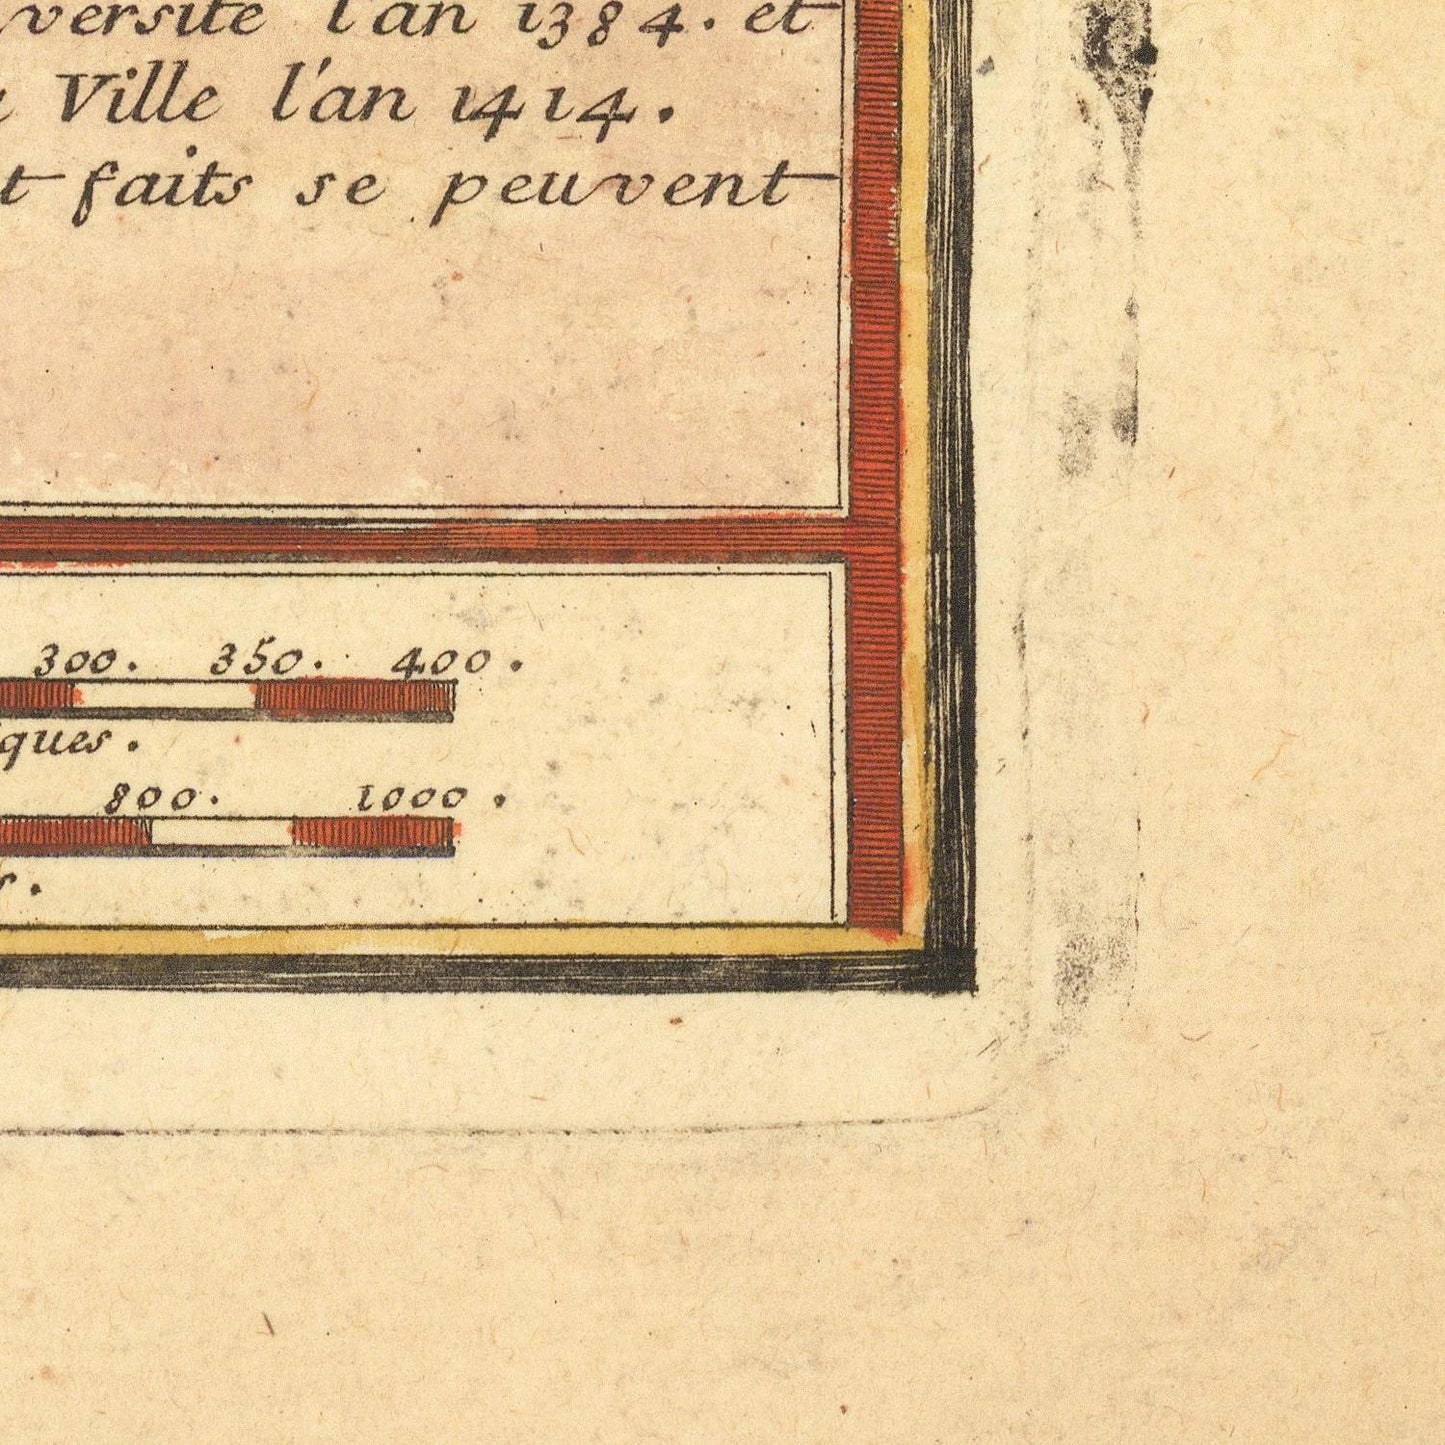 versite l'an 1384. et
Ville l'an 1414.
t faits se peuvent
300. 350. 400.
iques.
800. 1000.
s.